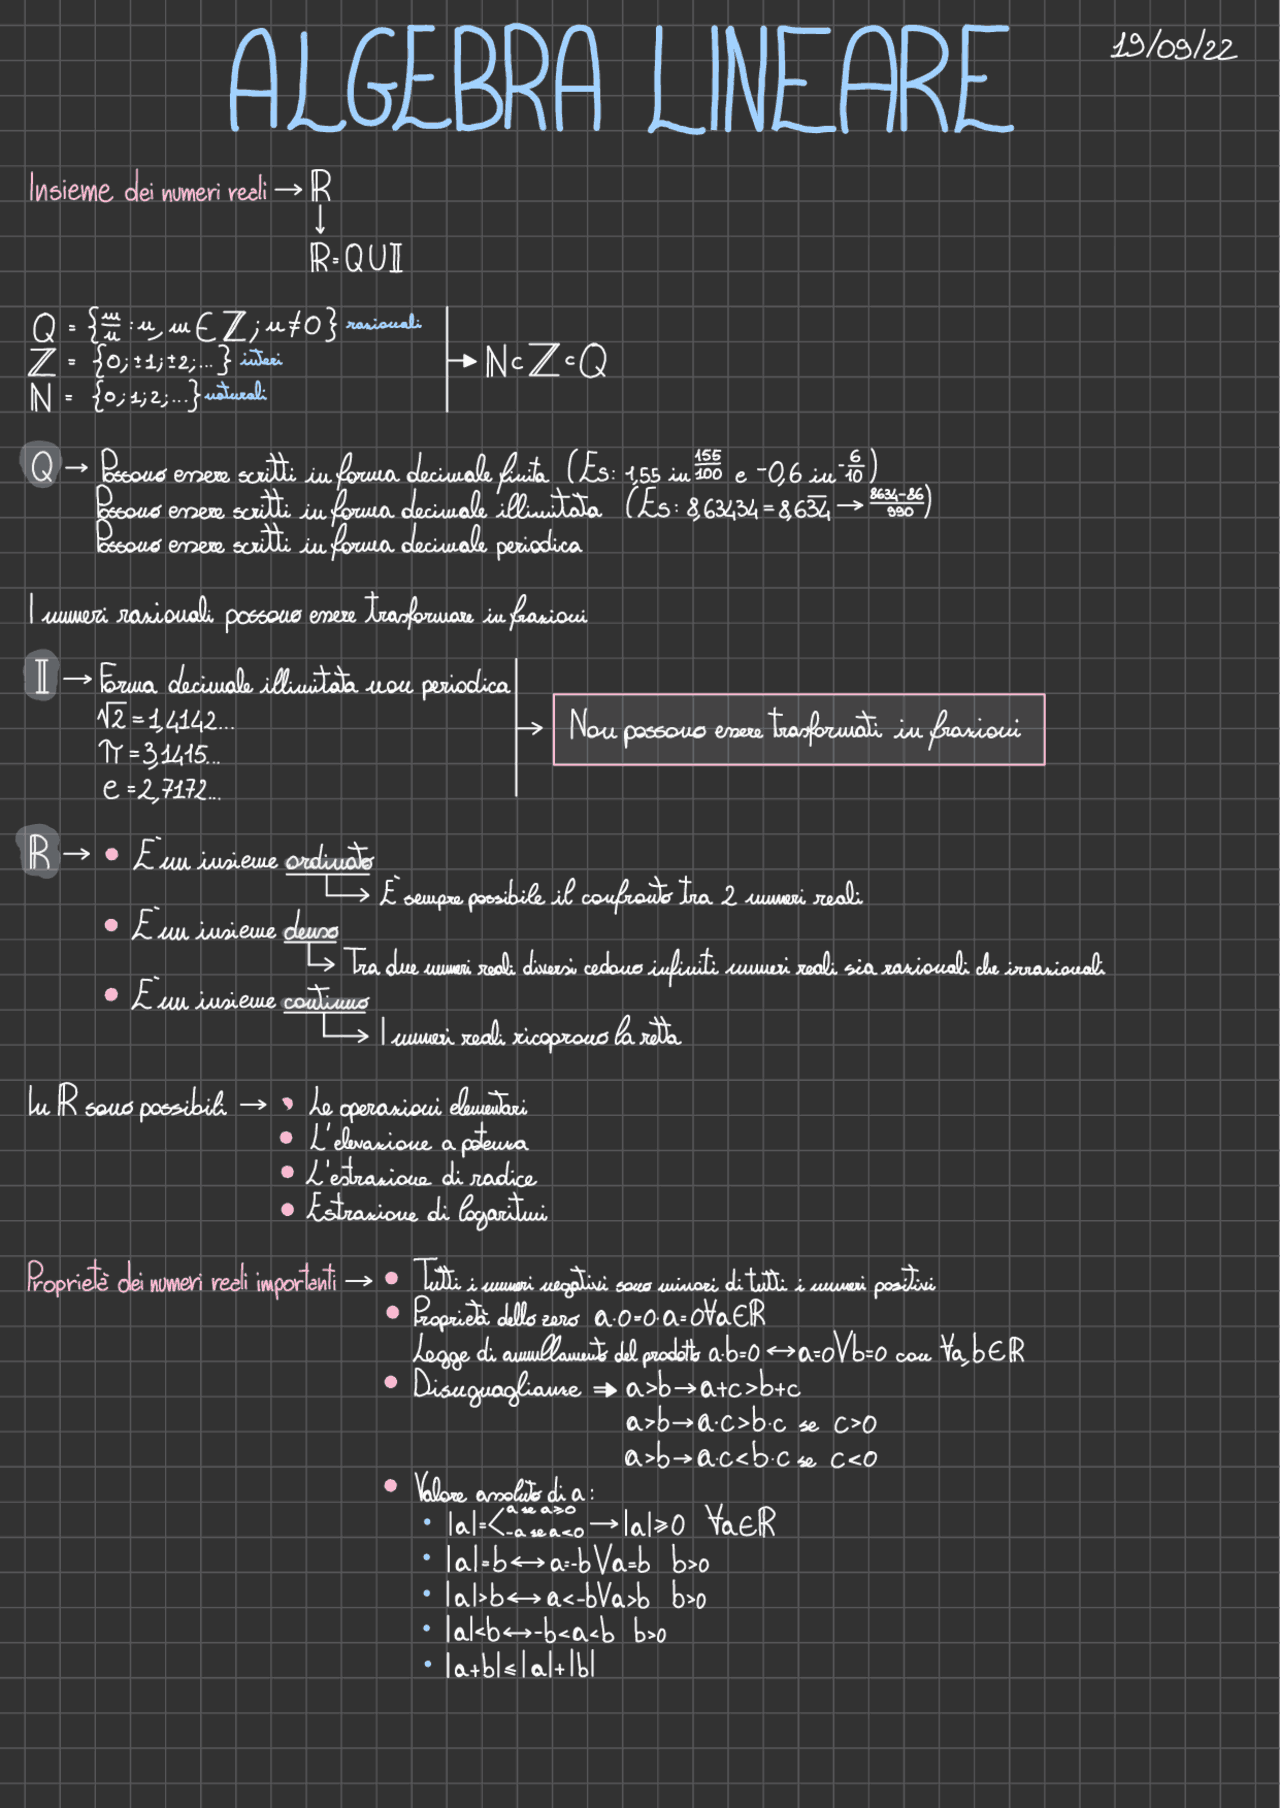 19/09/22
ALGEBRA LINEARE
Insieme dei numeri reali → ℝ
↓
ℝ=Q∪𝕀
Q = {m/n : n, m ∈ ℤ; n≠0} razionali
ℤ = {0; ±1; ±2; ...} interi
ℕ = {0; 1; 2; ...} naturali
→ ℕ⊂ℤ⊂Q
Q → Possono essere scritti in forma decimale finita (Es: 1,55 in 155/100 e -0,6 in -6/10)
Possono essere scritti in forma decimale illimitata (Es: 8,63434 = 8,63̅4̅ → 8634-86/990)
Possono essere scritti in forma decimale periodica
I numeri razionali possono essere trasformare in frazioni
𝕀 → Forma decimale illimitata non periodica
√2 = 1,4142...
π = 3,1415...
e = 2,7172...
→ Non possono essere trasformati in frazioni
ℝ → • È un insieme ordinato
→ È sempre possibile il confronto tra 2 numeri reali
• È un insieme denso
→ Tra due numeri reali diversi cedono infiniti numeri reali sia razionali che irrazionali
• È un insieme continuo
→ I numeri reali ricoprono la retta
In ℝ sono possibili → • Le operazioni elementari
• L'elevazione a potenza
• L'estrazione di radice
• Estrazione di logaritmi
Proprietà dei numeri reali importanti → • Tutti i numeri negativi sono minori di tutti i numeri positivi
• Proprietà dello zero a·0=0·a=0∀a∈ℝ
Legge di annullamento del prodotto a·b=0 ↔ a=0∨b=0 con ∀a,b∈ℝ
• Disuguaglianze ⇒ a>b→a+c>b+c
a>b→a·c>b·c se c>0
a>b→a·c<b·c se c<0
• Valore assoluto di a:
• |a|=< a se a≥0 -a se a<0 → |a|≥0 ∀a∈ℝ
• |a|=b↔a=-b∨a=b b>0
• |a|>b↔a<-b∨a>b b>0
• |a|<b↔-b<a<b b>0
• |a+b|≤|a|+|b|